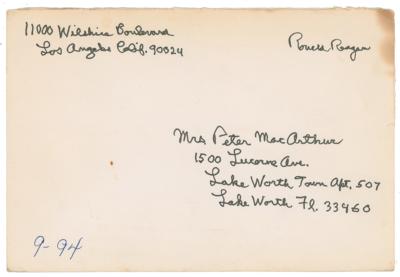 11000 Wilshire Boulevard
Los Angeles Calif. 90024
Ronald Reagan
Mrs Peter MacArthur
1500 Lucerne Ave.
Lake Worth Town Apt. 507
Lake Worth Fl. 33460
9-94